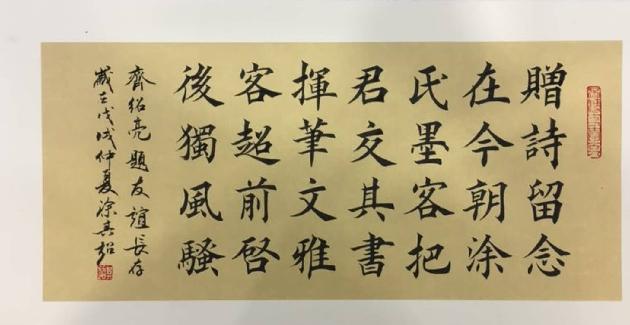 贈詩留念
在今朝涂
氏墨客把
君交其書
揮筆文雅
客超前啓
後獨風騷
齊紹亮題友誼長存
歲在戊戌仲夏涂其超